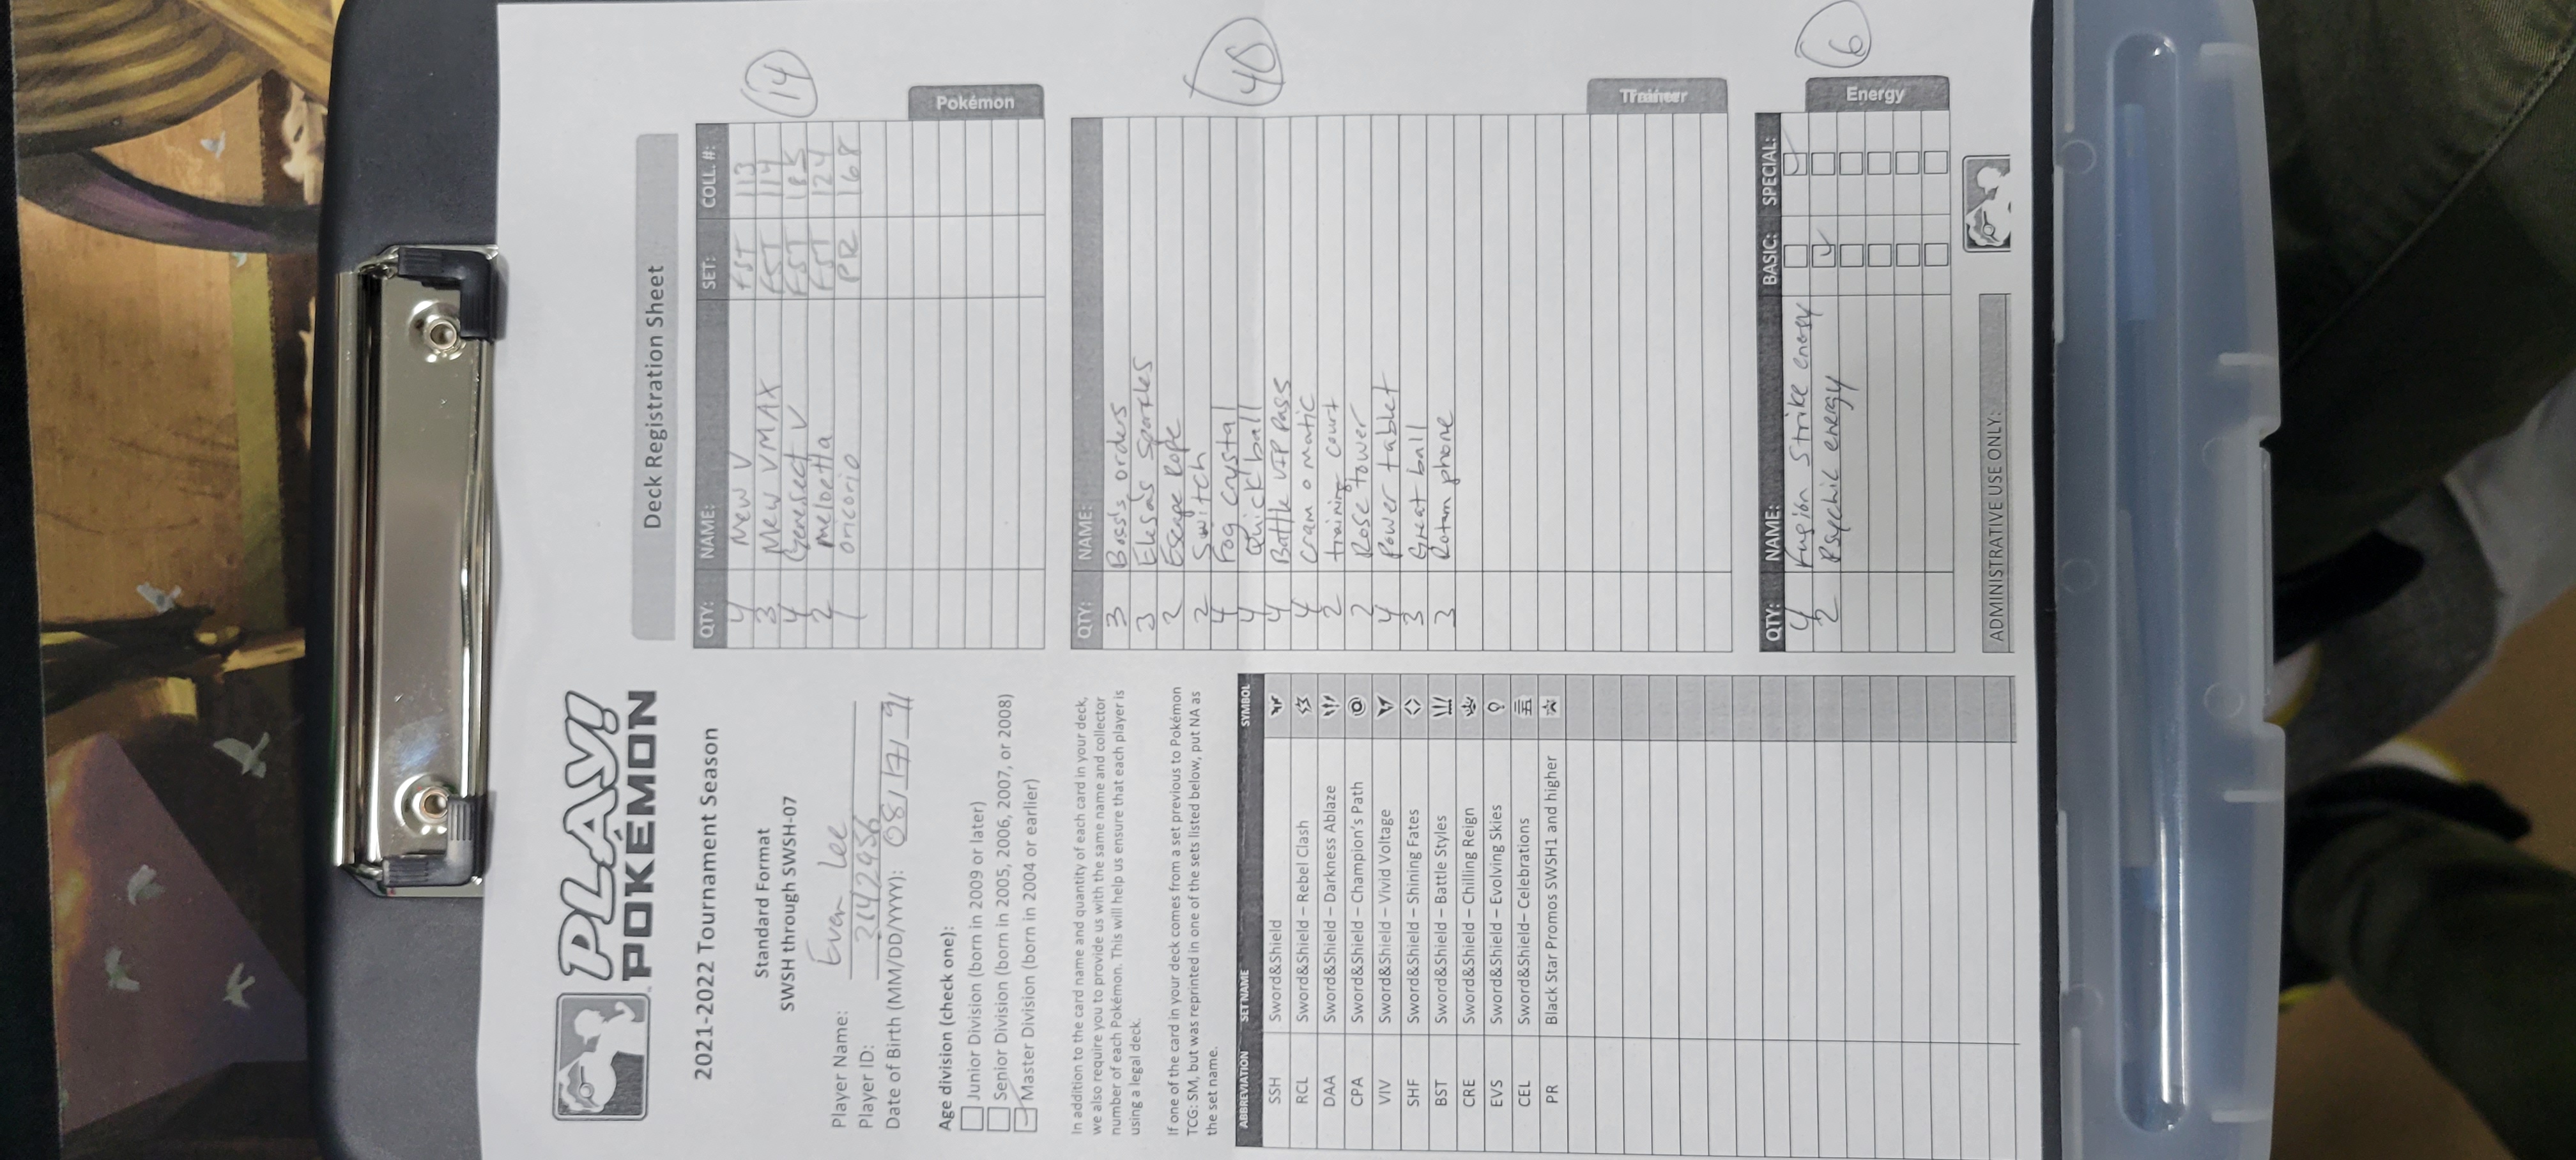 PLAY!
POKÉMON
2021-2022 Tournament Season
Standard Format
SWSH through SWSH-07
Player Name: Evan Lee
Player ID: 3142956
Date of Birth (MM/DD/YYYY): 08/17/91
Age division (check one):
Junior Division (born in 2009 or later)
Senior Division (born in 2005, 2006, 2007, or 2008)
Master Division (born in 2004 or earlier)
In addition to the card name and quantity of each card in your deck,
we also require you to provide us with the same name and collector
number of each Pokémon. This will help us ensure that each player is
using a legal deck.
If one of the card in your deck comes from a set previous to Pokémon
TCG: SM, but was reprinted in one of the sets listed below, put NA as
the set name.
ABBREVIATION SET NAME SYMBOL
SSH Sword&Shield
RCL Sword&Shield – Rebel Clash
DAA Sword&Shield – Darkness Ablaze
CPA Sword&Shield – Champion's Path
VIV Sword&Shield – Vivid Voltage
SHF Sword&Shield – Shining Fates
BST Sword&Shield – Battle Styles
CRE Sword&Shield – Chilling Reign
EVS Sword&Shield – Evolving Skies
CEL Sword&Shield– Celebrations
PR Black Star Promos SWSH1 and higher
Deck Registration Sheet
QTY: NAME: SET: COLL. #:
4 Mew V FST 113
3 Mew VMAX FST 114
4 Genesect V FST 185
2 meloetta FST 124
1 oricorio PR 168
14
Pokémon
QTY: NAME:
3 Boss's orders
3 Elesa's Sparkles
2 Escape Rope
2 Switch
4 Fog crystal
4 Quick ball
4 Battle VIP Pass
4 cram o matic
2 training court
2 Rose tower
4 Power tablet
3 Great ball
3 Rotom phone
40
Trainer
QTY: NAME: BASIC: SPECIAL:
4 Fusion Strike energy
2 Psychic energy
6
Energy
ADMINISTRATIVE USE ONLY: